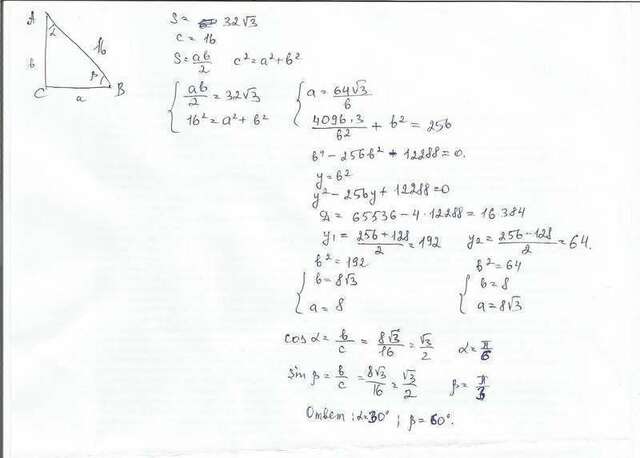 A
α
16
в
β
C
a
B
S = 32√3
c = 16
S = aв/2    c² = a² + в²
{ aв/2 = 32√3    { a = 64√3/в
16² = a² + в²    4096·3/в² + в² = 256
в⁴ − 256в² + 12288 = 0.
y = в²
y² − 256y + 12288 = 0
D = 65536 − 4·12288 = 16384
y₁ = (256 + 128)/2 = 192    y₂ = (256 − 128)/2 = 64.
в² = 192    в² = 64
{ в = 8√3    { в = 8
a = 8    a = 8√3
cos α = в/c = 8√3/16 = √3/2    α = π/6
sin β = в/c = 8√3/16 = √3/2    β = π/3
Ответ: α = 30°; β = 60°.